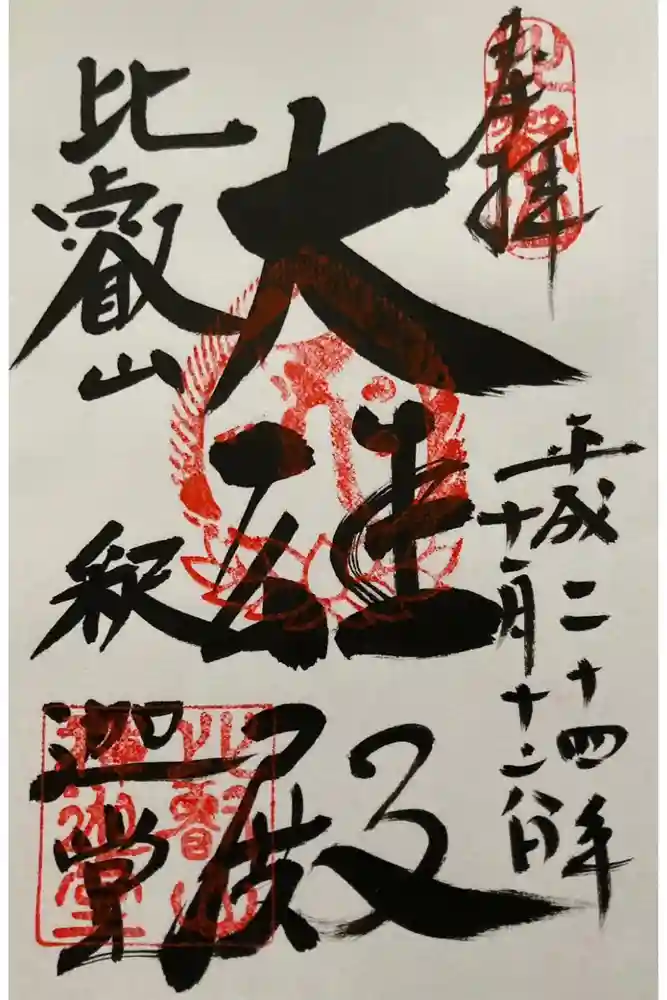 奉拝
平成二十四年
十一月十二日
大雄殿
比叡山
釈迦堂
比叡山
釋迦堂